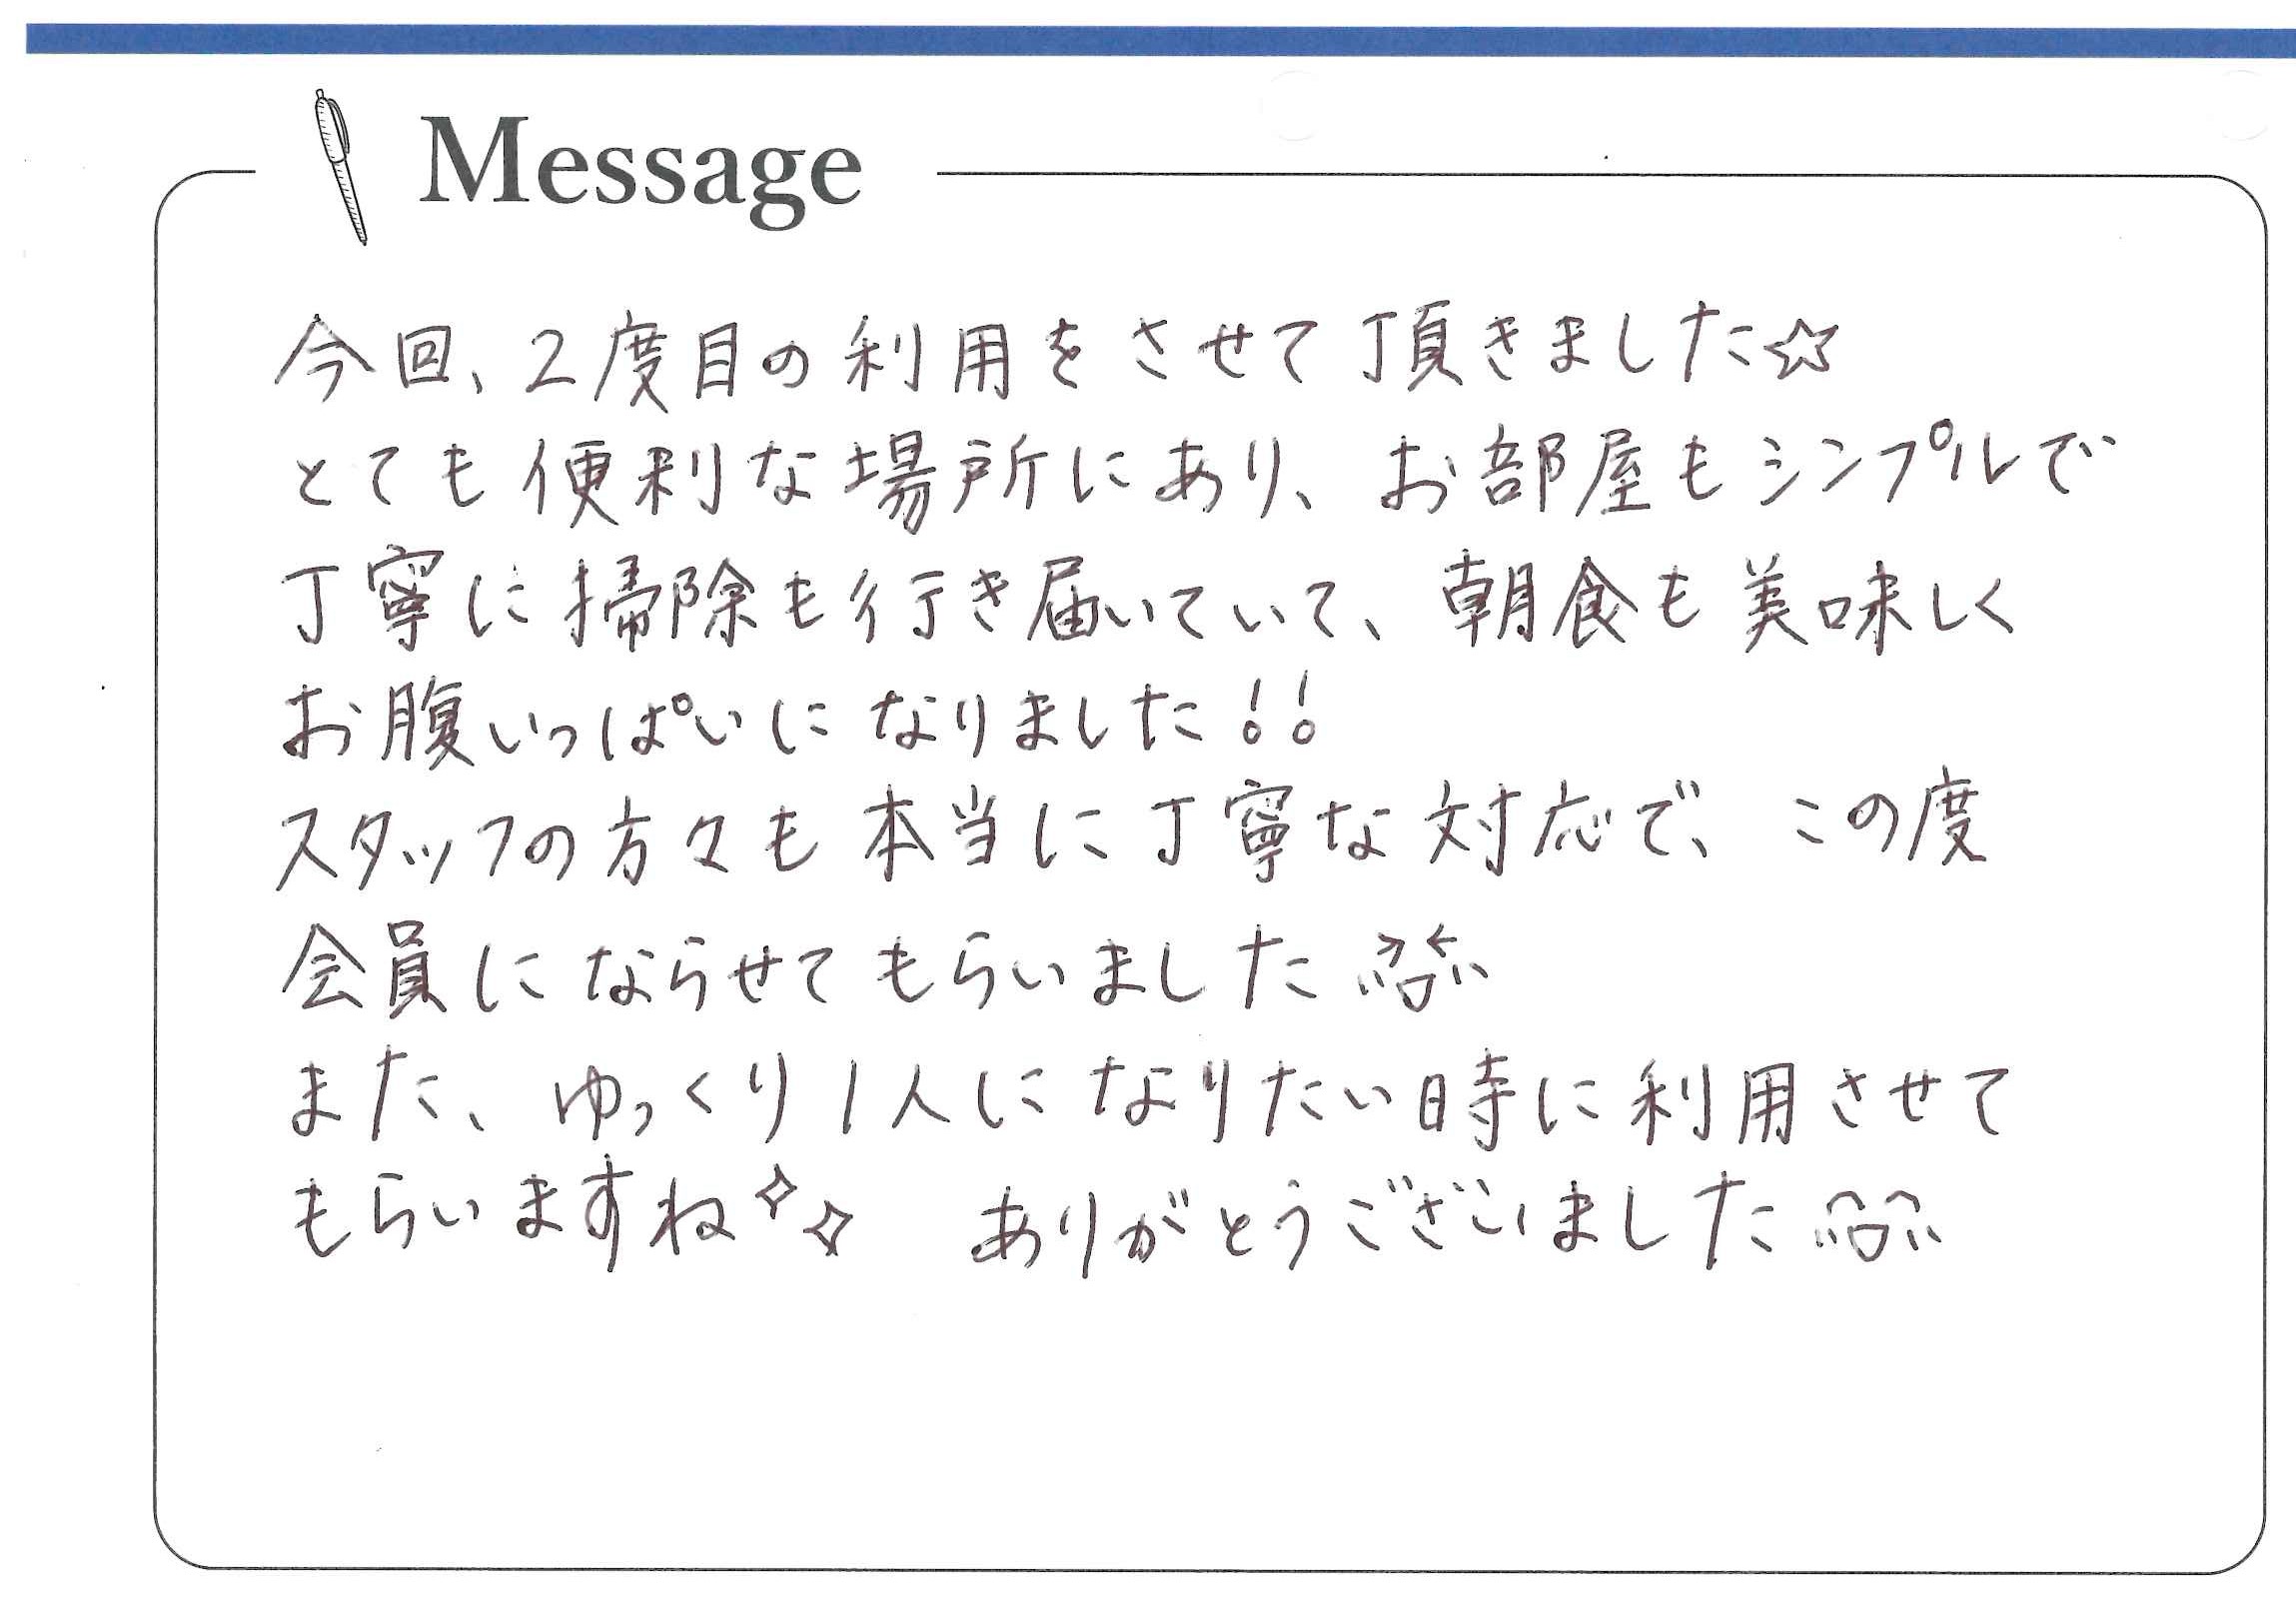 Message
今回、2度目の利用をさせて頂きました☆
とても便利な場所にあり、お部屋もシンプルで
丁寧に掃除も行き届いていて、朝食も美味しく
お腹いっぱいになりました!!
スタッフの方々も本当に丁寧な対応で、この度
会員にならせてもらいました
また、ゆっくり1人になりたい時に利用させて
もらいますね✧✧ ありがとうございました